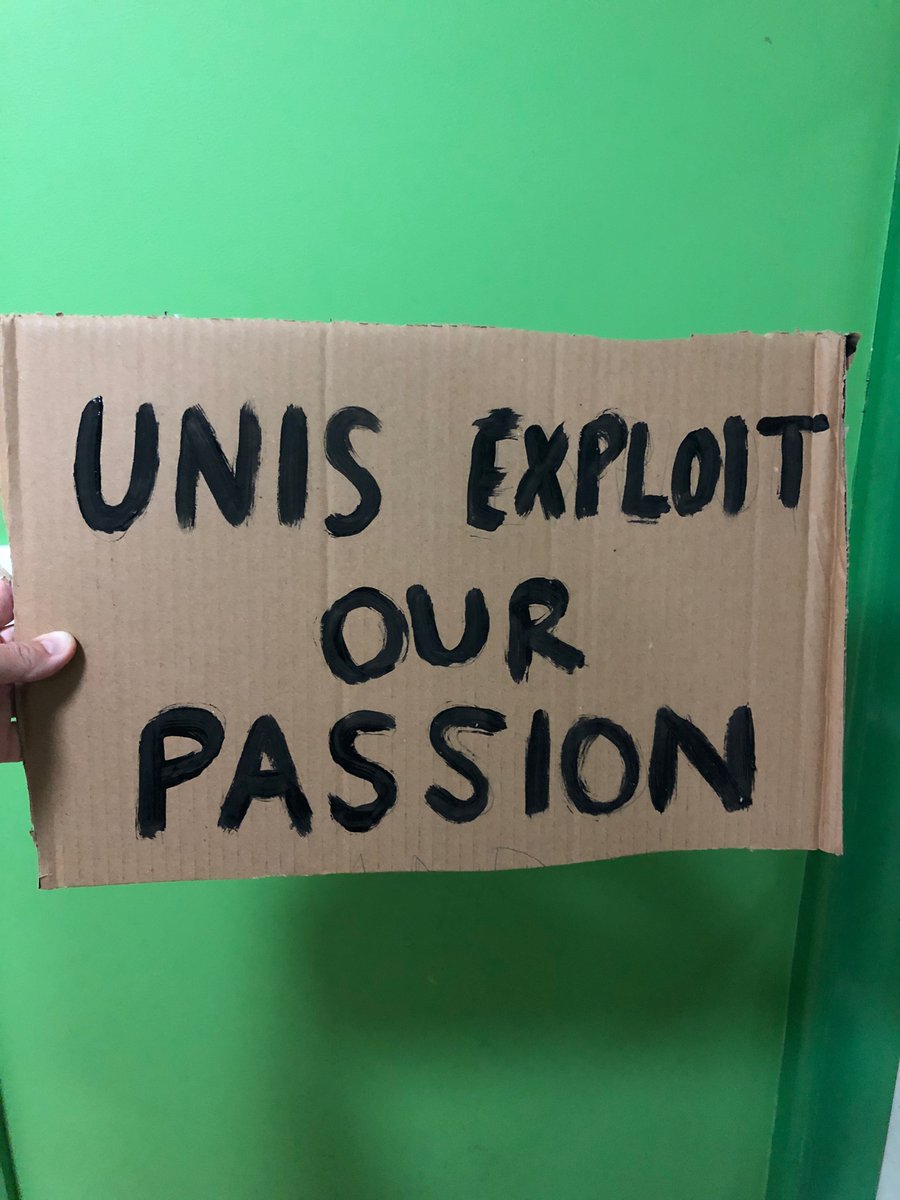 UNIS EXPLOIT
OUR
PASSION